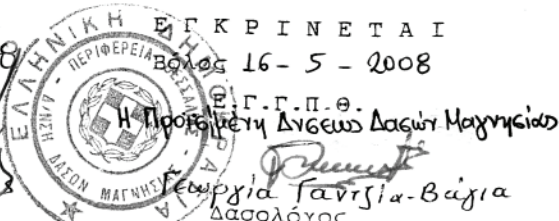 ΕΓΚΡΙΝΕΤΑΙ
Βόλος 16 - 5 - 2008
Ε.Γ.Γ.Π.Θ.
Η Προϊσμένη Δνσεως Δασών Μαγνησίας
Γεωργία Γαντζία-Βάγια
Δασολόγος
ΕΛΛΗΝΙΚΗ ΔΗΜΟΚΡΑΤΙΑ
ΠΕΡΙΦΕΡΕΙΑ ΘΕΣΣΑΛΙΑΣ - Δ/ΝΣΗ
ΔΑΣΩΝ ΜΑΓΝΗΣΙΑΣ